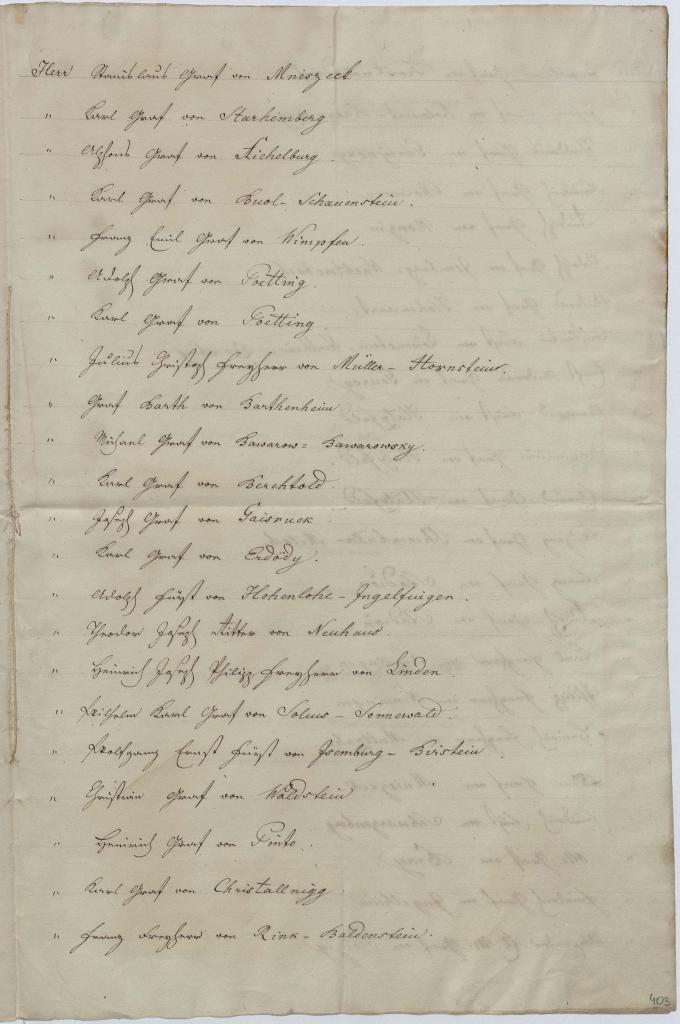 Herr Stanislaus Graf von Mniszeck
" Karl Graf von Starhemberg
" Alphons Graf von Aichelburg.
" Karl Graf von Buol-Schauenstein.
" Franz Emil Graf von Wimpfen.
" Adolph Graf von Poetting.
" Karl Graf von Poetting.
" Julius Christoph Freyherr von Müller-Hornstein.
" Graf Barth von Barthenheim
" Michael Graf von Bawarow=Bawarowsky.
" Karl Graf von Berchtold.
" Joseph Graf von Gaisruck.
" Karl Graf von Erdödy.
" Adolph Fürst von Hohenlohe-Ingelfingen.
" Theodor Joseph Ritter von Neuhaus.
" Heinrich Joseph Philipp Freyherr von Linden.
" Wilhelm Karl Graf von Solms-Sonnewald.
" Wolfgang Ernst Fürst von Isemburg-Birstein
" Christian Graf von Waldstein
" Heinrich Graf von Pinto.
" Karl Graf von Christallnigg.
" Franz Freyherr von Rink-Baldenstein.
403